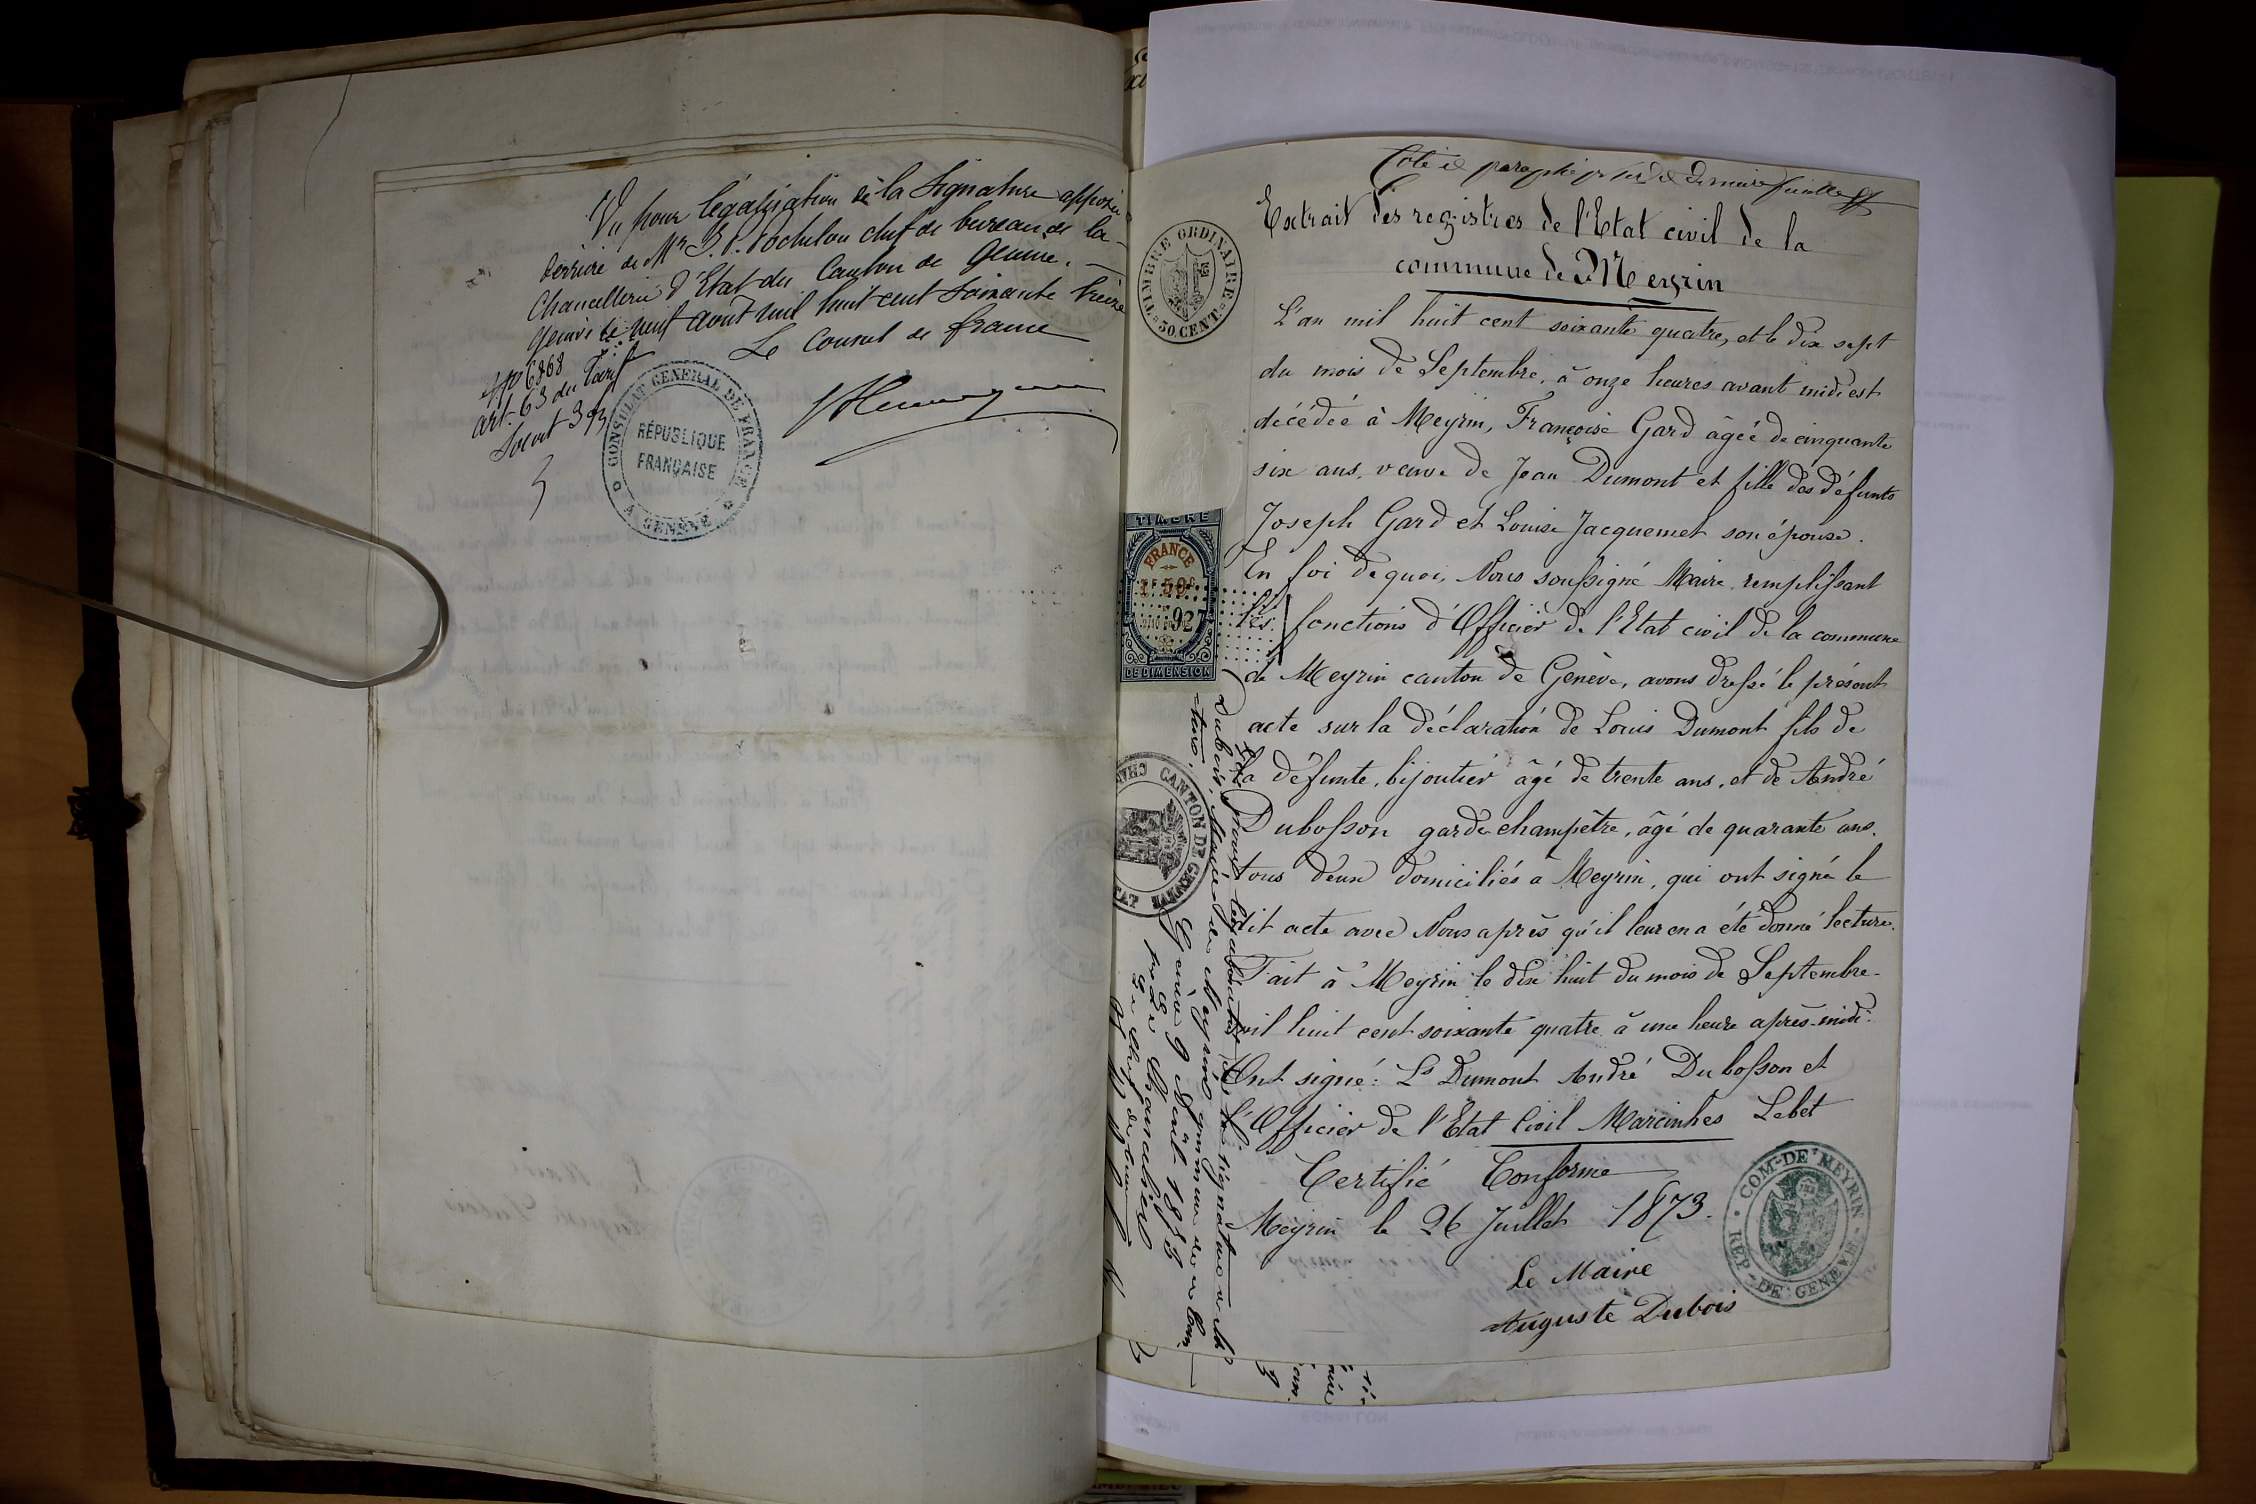 Vu pour légalisation de la Signature apposée
derrière de Mr J. P. chef de bureau de la
Chancellerie d'Etat du Canton de Genève.
Genève le neuf Août mil huit cent soixante treize
Le Consul de france
No 6868
art. 63 du Tarif
CONSULAT GENERAL DE FRANCE
A GENÈVE
RÉPUBLIQUE
FRANÇAISE
Coté et paraphé pr et dernière feuille
Extrait des registres de l'Etat civil de la
commune de Meyrin
TIMBRE ORDINAIRE
50 CENT.
L'an mil huit cent soixante quatre, et le dix sept
du mois de Septembre, à onze heures avant midi est
décédée à Meyrin, Françoise Gard âgée de cinquante
six ans, veuve de Jean Dumont et fille des défunts
Joseph Gard et Louise Jacquemet son épouse.
En foi de quoi, Nous soussigné Maire remplissant
les fonctions d'Officier de l'Etat civil de la commune
de Meyrin canton de Genève, avons dressé le présent
acte sur la déclaration de Louis Dumont fils de
la défunte, bijoutier âgé de trente ans, et de André
Dubosson garde champêtre, âgé de quarante ans.
tous deux domiciliés à Meyrin, qui ont signé le
dit acte avec Nous après qu'il leur en a été donné lecture.
Fait à Meyrin le dix huit du mois de Septembre
mil huit cent soixante quatre à une heure après-midi.
Ont signé: Ls Dumont André Dubosson et
l'Officier de l'Etat Civil Marcinhes Lebet
Certifié Conforme
Meyrin le 26 Juillet 1873.
Le Maire
Auguste Dubois
COM. DE MEYRIN
REP. DE GENÈVE
TIMBRE
FRANCE
1F 50c
927
DE DIMENSION
CANTON DE GENÈVE
Vu pour légalisation de la signature de Mr
Dubois, Maire de Meyrin, commune de ce Can-
-ton.
Genève 9 Août 1873
Pour le Chancelier
Le Chef de bureau